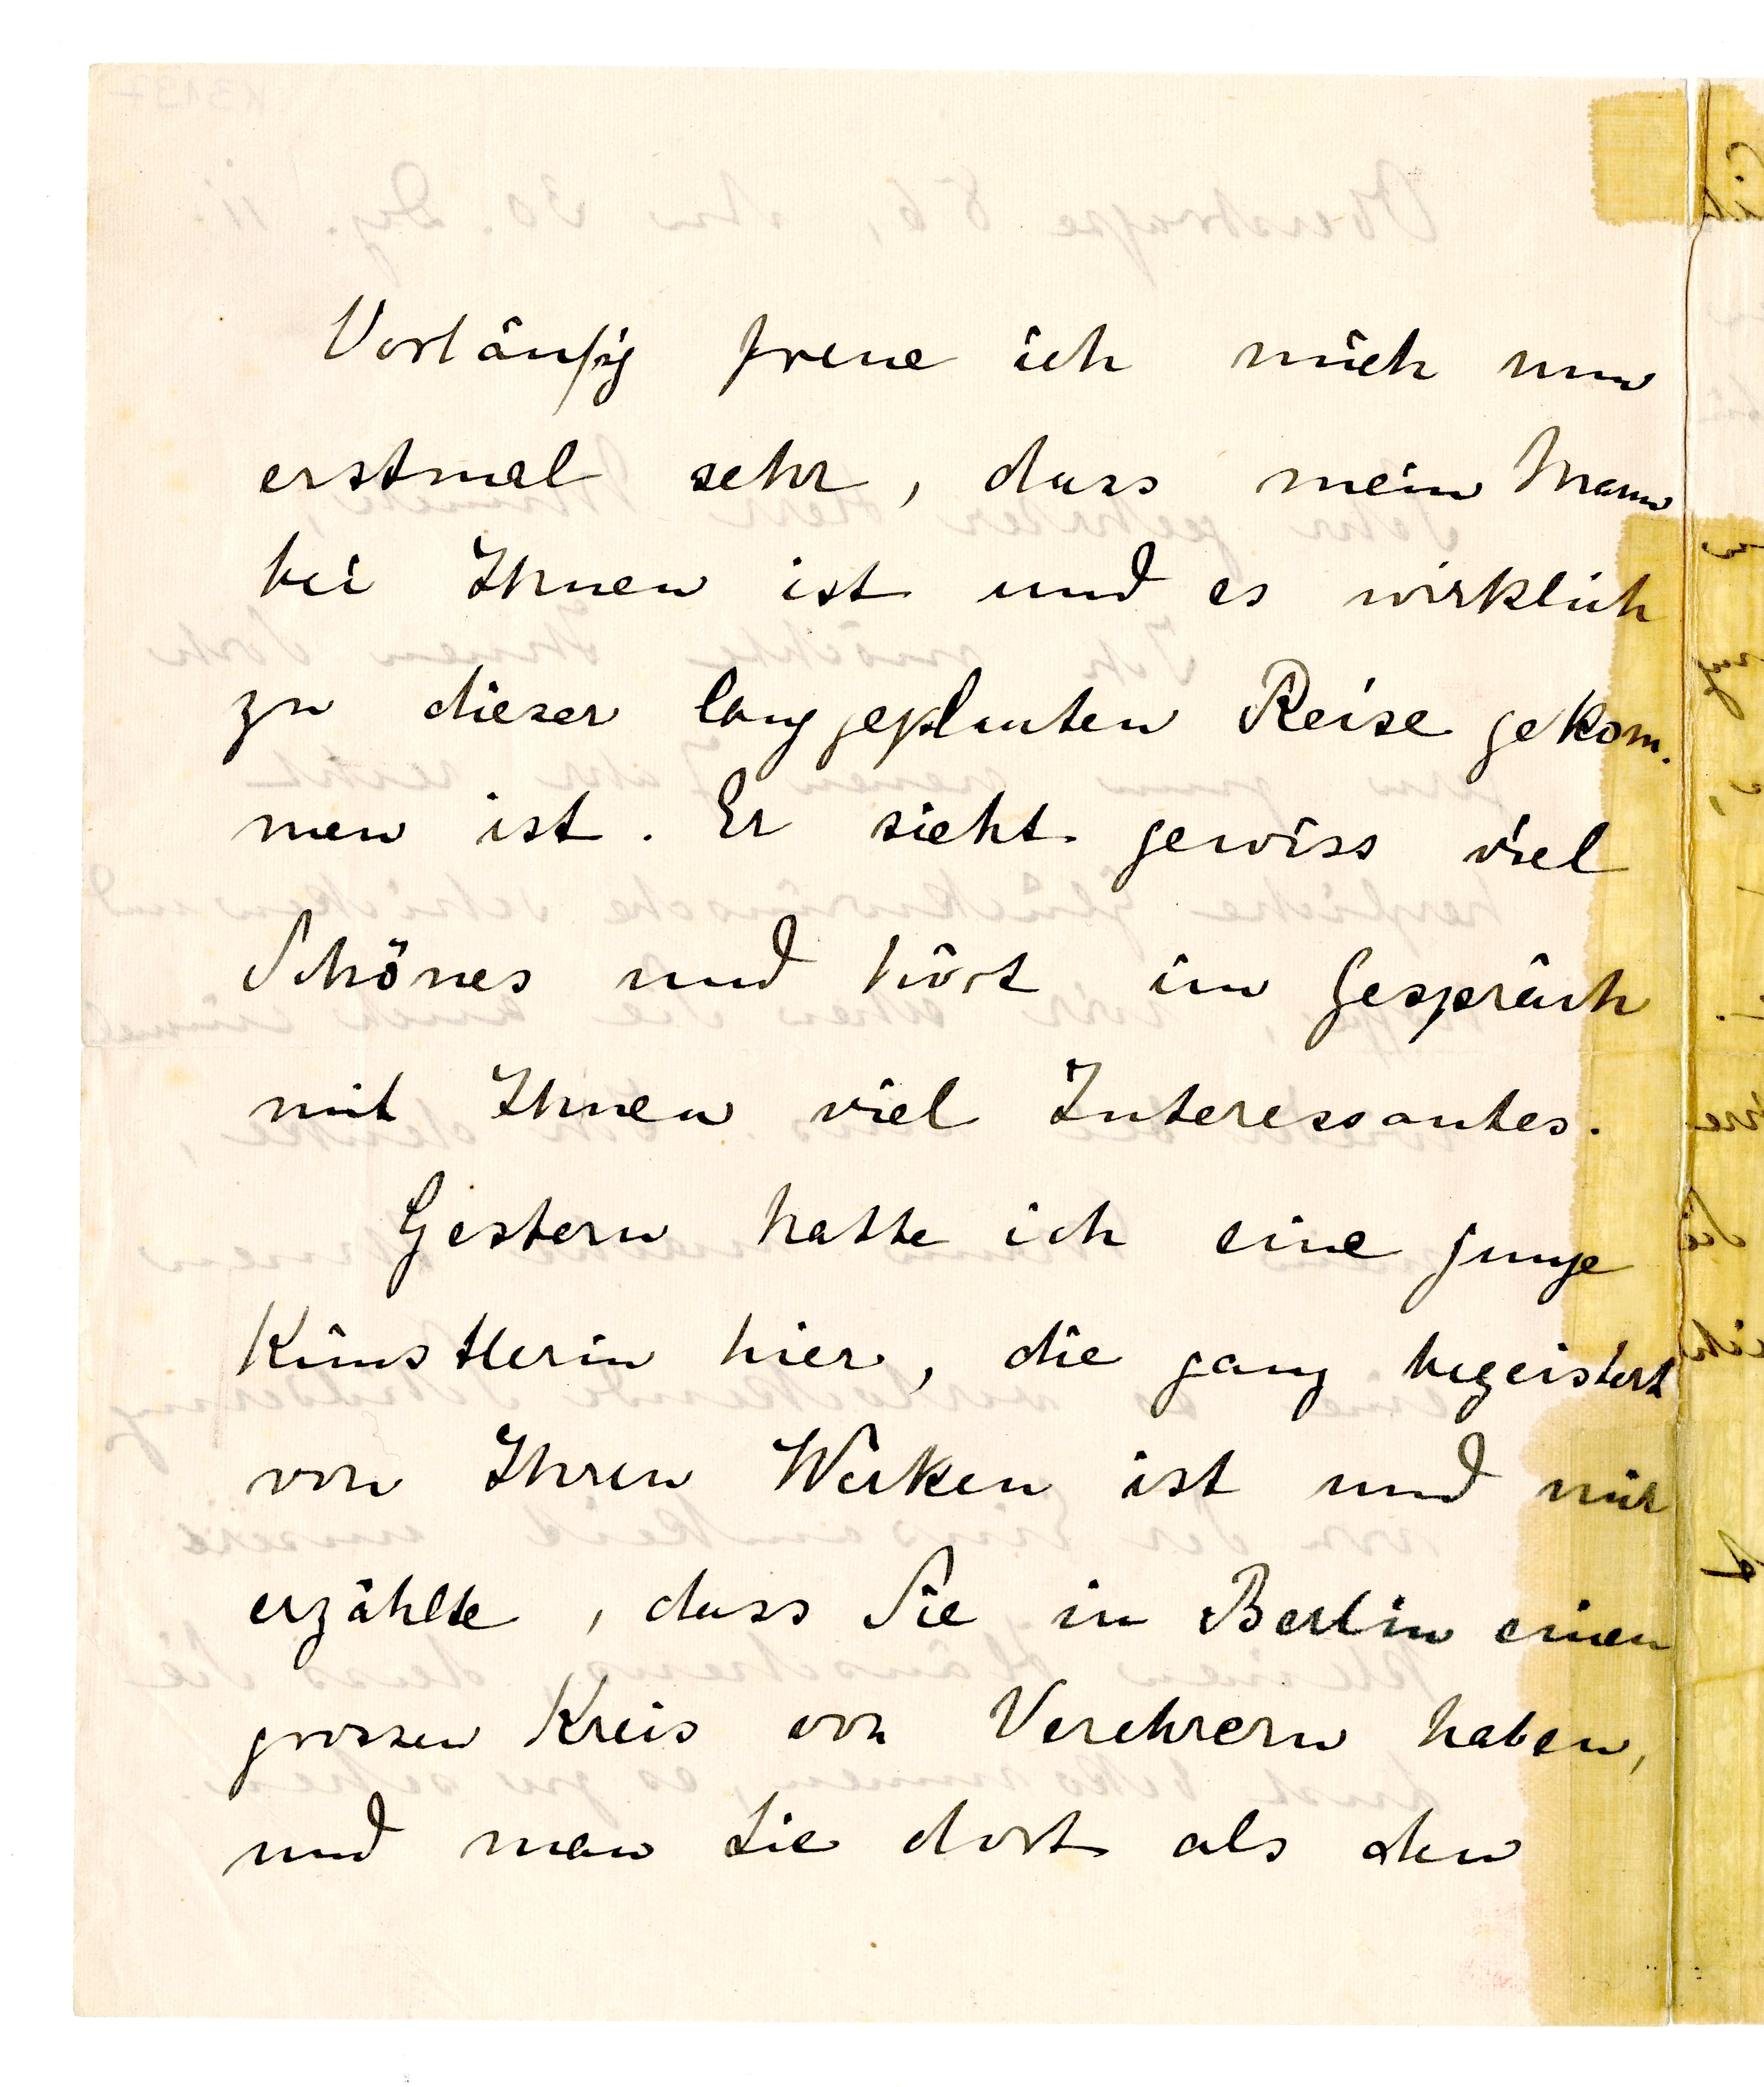 Vorläufig freue ich mich nun
erstmal sehr, dass mein Mann
bei Ihnen ist und es wirklich
zu dieser langgeplanten Reise gekom-
men ist. Er sieht gewiss viel
Schönes und hört im Gespräch
mit Ihnen viel Interessantes.
Gestern hatte ich eine junge
Künstlerin hier, die ganz begeistert
von Ihren Werken ist und mir
erzählte, dass Sie in Berlin einen
grossen Kreis von Verehrern haben,
und man Sie dort als den